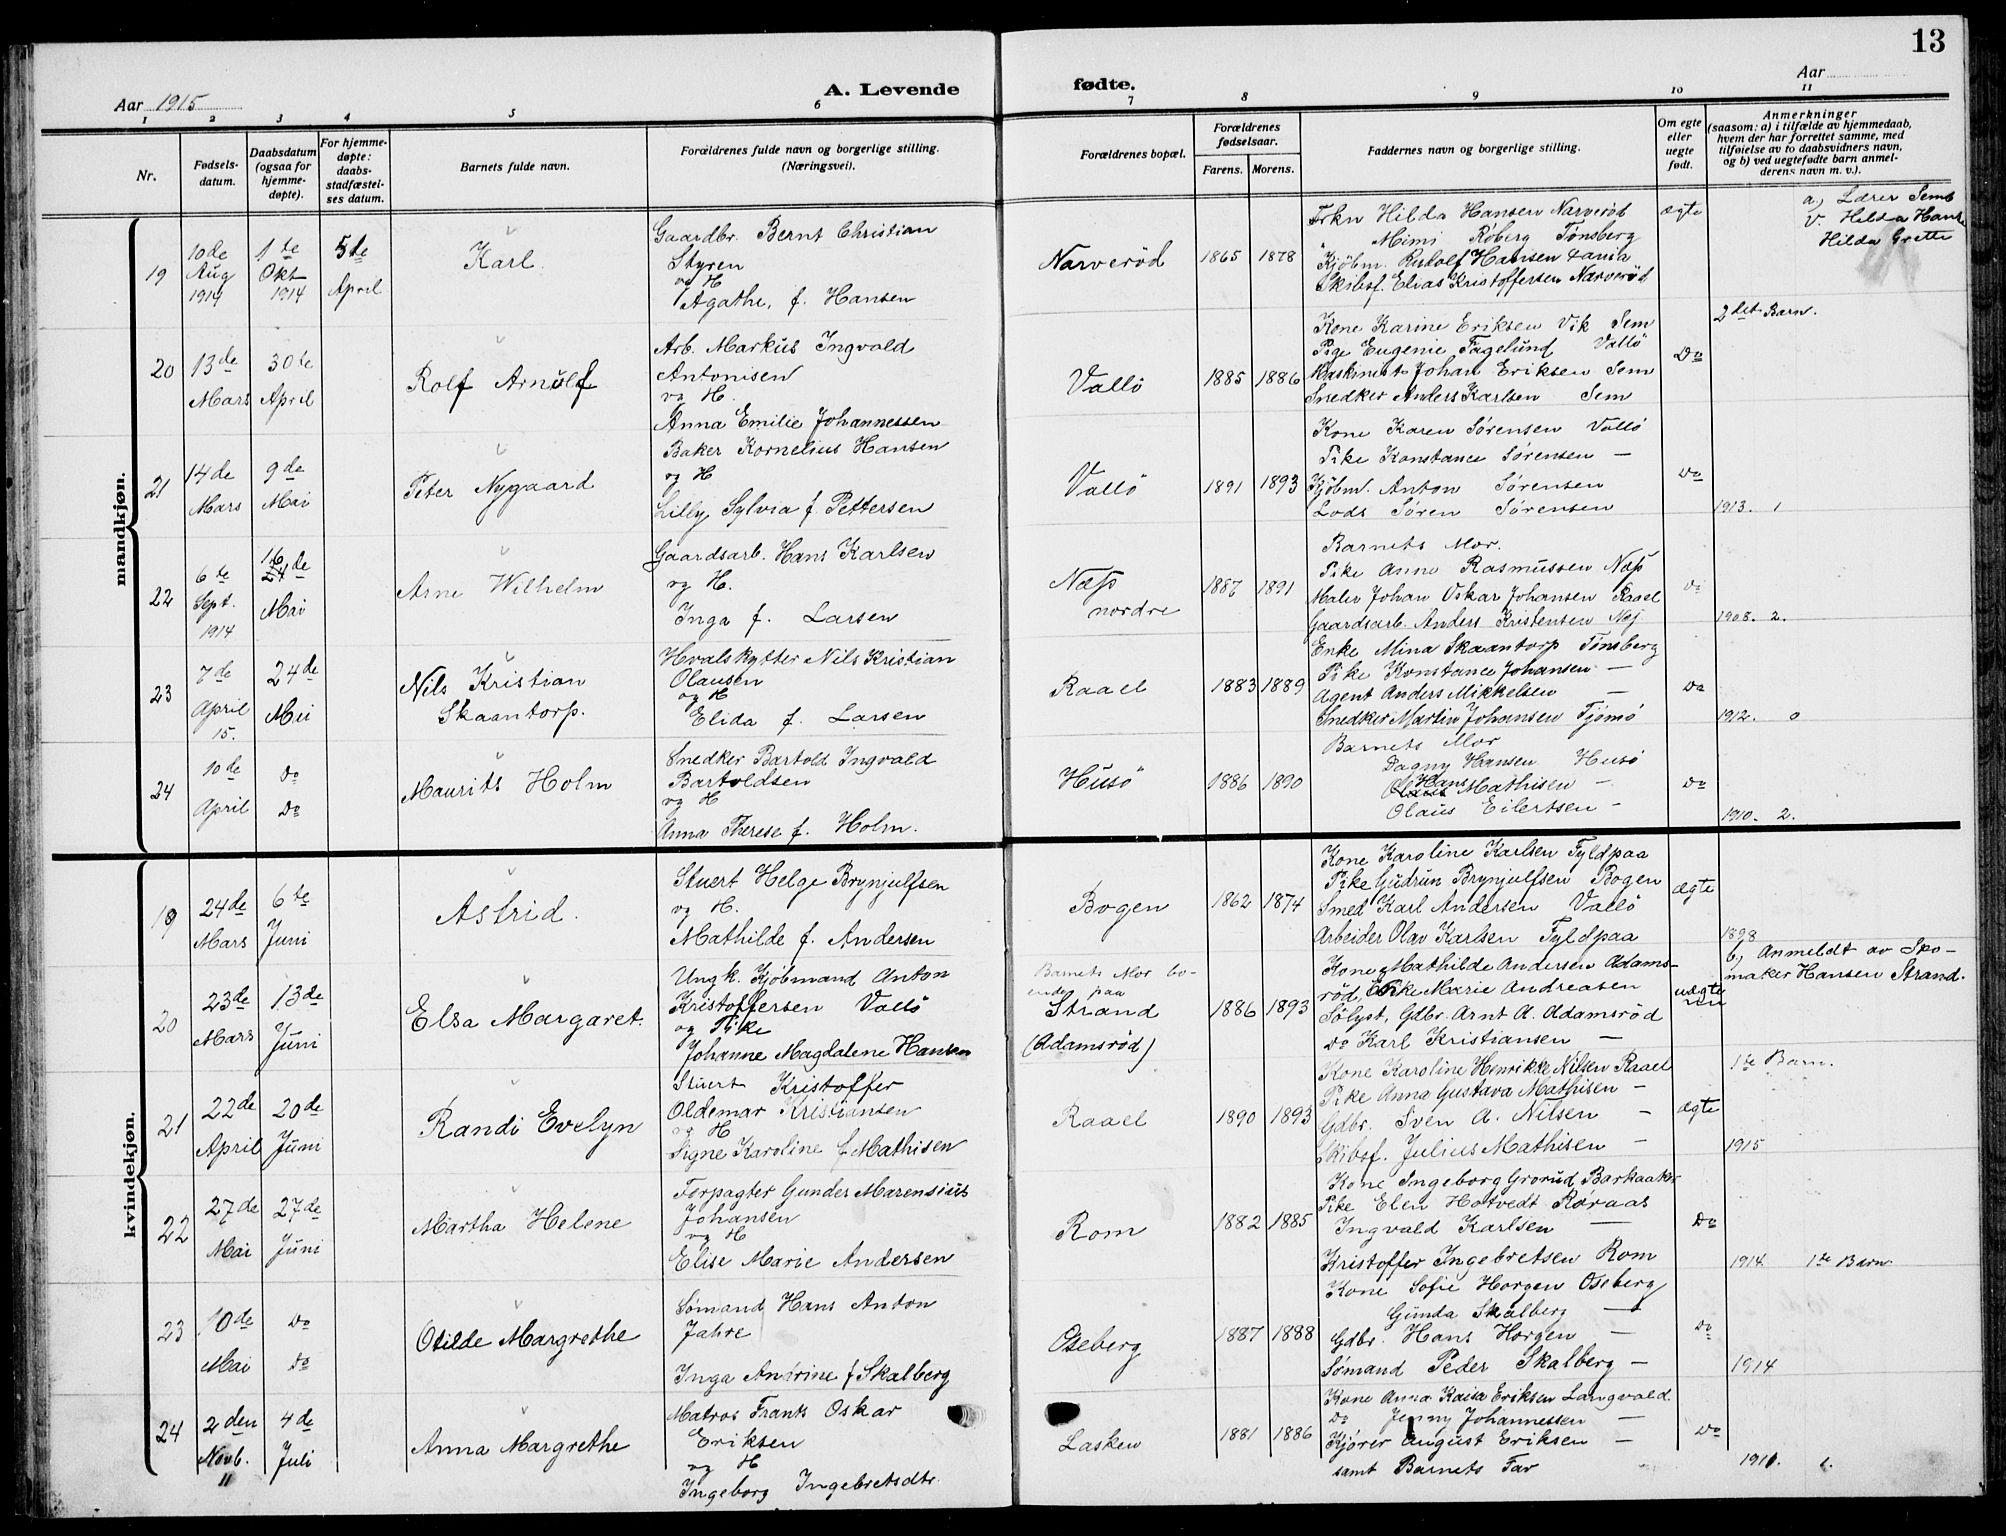 13
Aar 1915
A. Levende
fødte.
Aar
1
2
3
4
5
6
7
8
9
10
11
Nr.
Fødsels-
datum.
Daabsdatum
(ogsaa for
hjemme-
døpte).
For hjemme-
døpte:
daabs-
stadfæstel-
ses datum.
Barnets fulde navn.
Forældrenes fulde navn og borgerlige stilling.
(Næringsvei).
Forældrenes bopæl.
Forældrenes
fødselsaar.
Farens. Morens.
Faddernes navn og borgerlige stilling.
Om egte
eller
uegte
født.
Anmerkninger
(saasom: a) i tilfælde av hjemmedaab,
hvem der har forrettet samme, med
tilføielse av to daabsvidners navn,
og b) ved uegtefødte barn anmel-
derens navn m. v.).
mandkjøn.
19
10de
Aug
1914
1te
Okt
1914
5te
April
Karl.
Gaardbr. Bernt Christian
Styren
og H
Agathe, f. Hansen
Narverød
1865 1878
Frkn Hilda Hansen Narverød
" Mimi Røberg Tønsberg
Kjøbm. Rudolf Hansen
Skibsf. Elias Kristoffersen Narverød
ægte
a) Lærer Semb
v. Hilda Hans
Hilda Grette
20
13de
Mars
30te
April
Rolf Arnulf
Arb. Markus Ingvald
Antonisen
og H.
Anna Emilie Johannessen
Vallö
1885 1886
Kone Karine Eriksen Vik Sem
Pige Eugenie Fagelund Vallö
Maskinist Johan Eriksen Sem
Snedker Anders Karlsen Sem
Do
2det Barn.
21
14de
Mars
9de
Mai
Peter Nygaard
Baker Kornelius Hansen
og H
Lilly Sylvia f. Pettersen
Vallö
1891 1893
Kone Karen Sørensen Vallö
Pike Konstance Sørensen —
Kjöbm. Anton Sørensen
Lods Søren Sørensen
Do
1913. 1
22
6te
Sept.
1914
16
24de
Mai
Arne Wilhelm
Gaardsarb. Hans Karlsen
og H.
Inga f. Larsen
Næss
nordre
1887 1891
Barnets Mor.
Pike Anna Rasmussen Næss
Maler Johan Oskar Johansen Raael
Gaardsarb. Anders Kristensen
Do
1908. 2.
23
7de
April
15.
24de
Mai
Nils Kristian
Skaantorp.
Hvalskytter Nils Kristian
Olausen
og H
Elida f. Larsen
Raael
1883 1889
Enke Mina Skaantorp Tønsberg
Pike Konstance Johansen —
Agent Anders Mikkelsen —
Snedker Martin Johansen Tjömö
Do
1912. 0
24
10de
April
Do
Do
Maurits Holm
Snedker Bartold Ingvald
Bartoldsen
og H
Anna Therese f. Holm.
Husö
1886 1890
Barnets Mor
Dagny Hansen Husö
Hans Mathisen —
Olaus Eilertsen —
Do
1910. 2.
kvindekjøn.
19
24de
Mars
6te
Juni
Astrid.
Stuert Helge Brynjulfsen
og H.
Mathilde f. Andersen
Bogen
1862 1874
Kone Karoline Karlsen Fyldpaa
Pike Gudrun Brynjulfsen Bogen
Smed Karl Andersen Vallö
Arbeider Olav Karlsen Fyldpaa
ægte
1898
20
23de
Mars
13de
Juni
Elsa Margaret.
Ungk. Kjöbmand Anton
Kristoffersen Vallö
og Pike
Johanne Magdalene Hansen
Barnets Mor bo-
ende paa
Strand
(Adamsrød)
1886 1893
Kone Mathilde Andersen Adams-
rød, Pike Marie Andreasen
Sölyst, Gdbr. Arnt A. Adamsröd
Do Karl Kristiansen —
uægte
b) Anmeldt av Sko-
maker Hansen Strand.
21
22de
April
20de
Juni
Randi Evelyn
Stuert Kristoffer
Oldemar Kristiansen
og H
Signe Karoline f Mathisen
Raael
1890 1893
Kone Karoline Henrikke Nilsen Raael
Pike Anna Gustava Mathisen —
Gdbr. Sven A. Nilsen —
Skibsf. Julius Mathisen —
ægte
1te Barn.
1915
22
27de
Mai
27de
Juni
Martha Helene
Forpagter Gunder Marensius
Johansen
og H
Elise Marie Andersen
Rom
1882 1885
Kone Ingeborg Grorud Barkaaker
Pike Elen Hotvedt Røraas
Ingvald Karlsen —
Kristoffer Ingebretsen Rom
Do
1914 1te Barn
23
10de
Mai
Do
Do
Otilde Margrethe
Sømand Hans Anton
Jahre
Inga Andrine f Skalberg
Oseberg
1887 1888
Kone Sofie Horgen Oseberg
Gunda Skalberg —
Gdbr. Hans Horgen —
Sømand Peder Skalberg —
Do
1914
24
2den
Novb.
11
4de
Juli
Anna Margrethe
Matros Frants Oskar
Eriksen
og H
Ingeborg Ingebretsdtr.
Lasken
1881 1886
Kone Anna Kaisa Eriksen Langvald
Do Jenny Johannessen —
Kjører August Eriksen —
samt Barnets Far
Do
1911. 1.